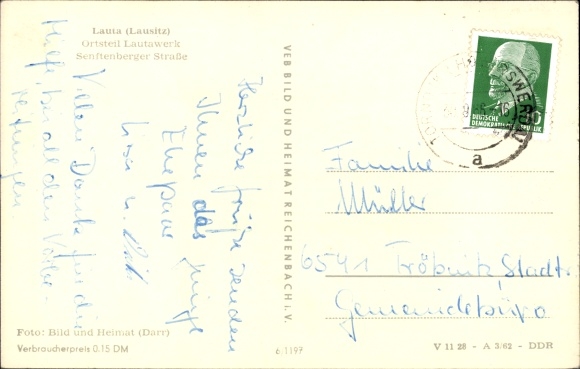 Lauta (Lausitz)
Ortsteil Lautawerk
Senftenberger Straße
Herzliche Grüße senden
Ihnen das junge
Ehepaar
Vielen Dank für die
Hilfe bei all den Vorbe-
reitungen
VEB BILD UND HEIMAT REICHENBACH i. V.
DEUTSCHE
DEMOKRATISCHE REPUBLIK
a
Familie
Müller
6541 Tröbnitz, Stadtr.
Gemeindebüro
Foto: Bild und Heimat (Darr)
Verbraucherpreis 0.15 DM
6/1197
V 11 28 - A 3/62 - DDR